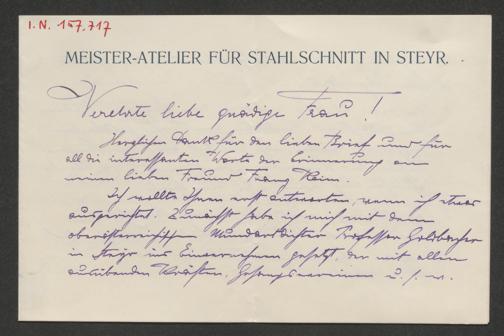 I.N. 157.717
MEISTER-ATELIER FÜR STAHLSCHNITT IN STEYR.
Verehrte liebe gnädige Frau!
Herzlichen Dank für den lieben Brief und für
all die interessanten Worte der Erinnerung an
meinen lieben Freund Franz
Ich wollte Ihnen erst antworten, wenn ich etwas
ausgerichtet. Zunächst habe ich mich mit dem
oberösterreichischen Mundartdichter Professor Goldbacher
in Steyr ins Einvernehmen gesetzt, der mit allen
ausübenden Kräften, Gesangsvereinen u. s. w.